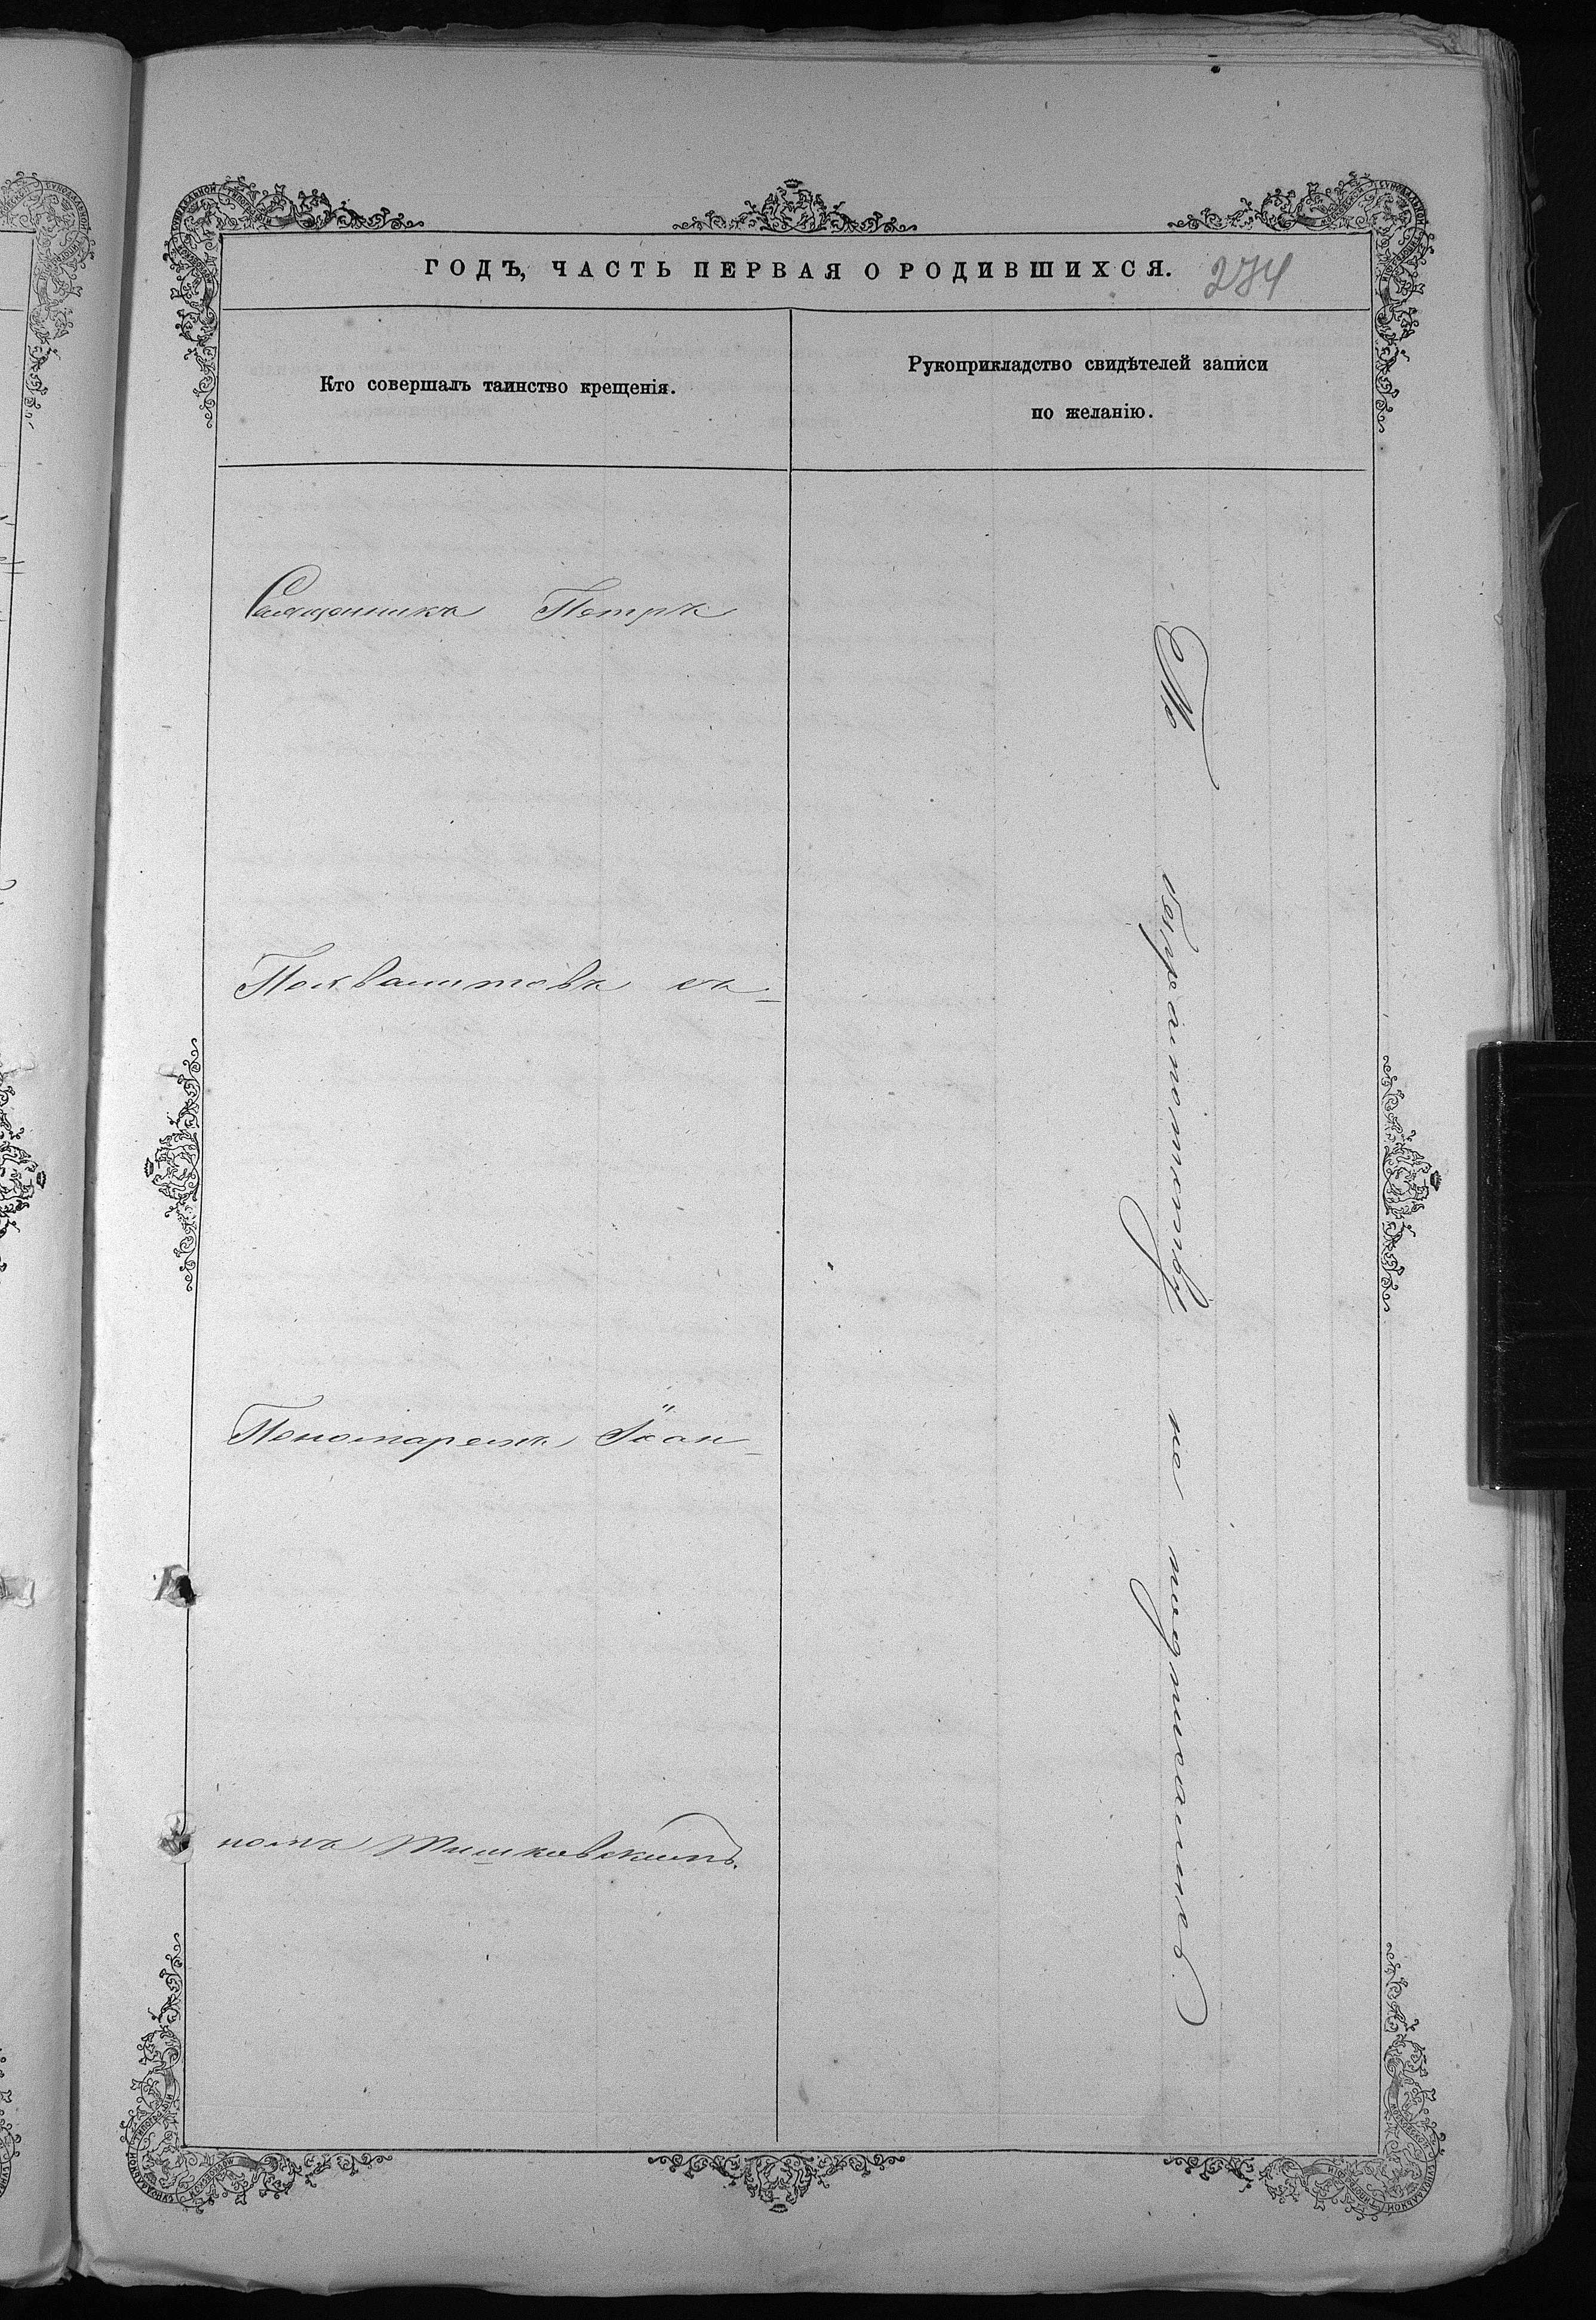 ГОДЪ, ЧАСТЬ ПЕРВАЯ О РОДИВШИХСЯ. 274
Кто совершалъ таинство крещенія.
Рукоприкладство свидѣтелей записи
по желанію.
Священникъ Петръ
Похвалитовъ съ
Пономаремъ Іоан-
номъ Тишковскимъ.
По безграмотству не подписались